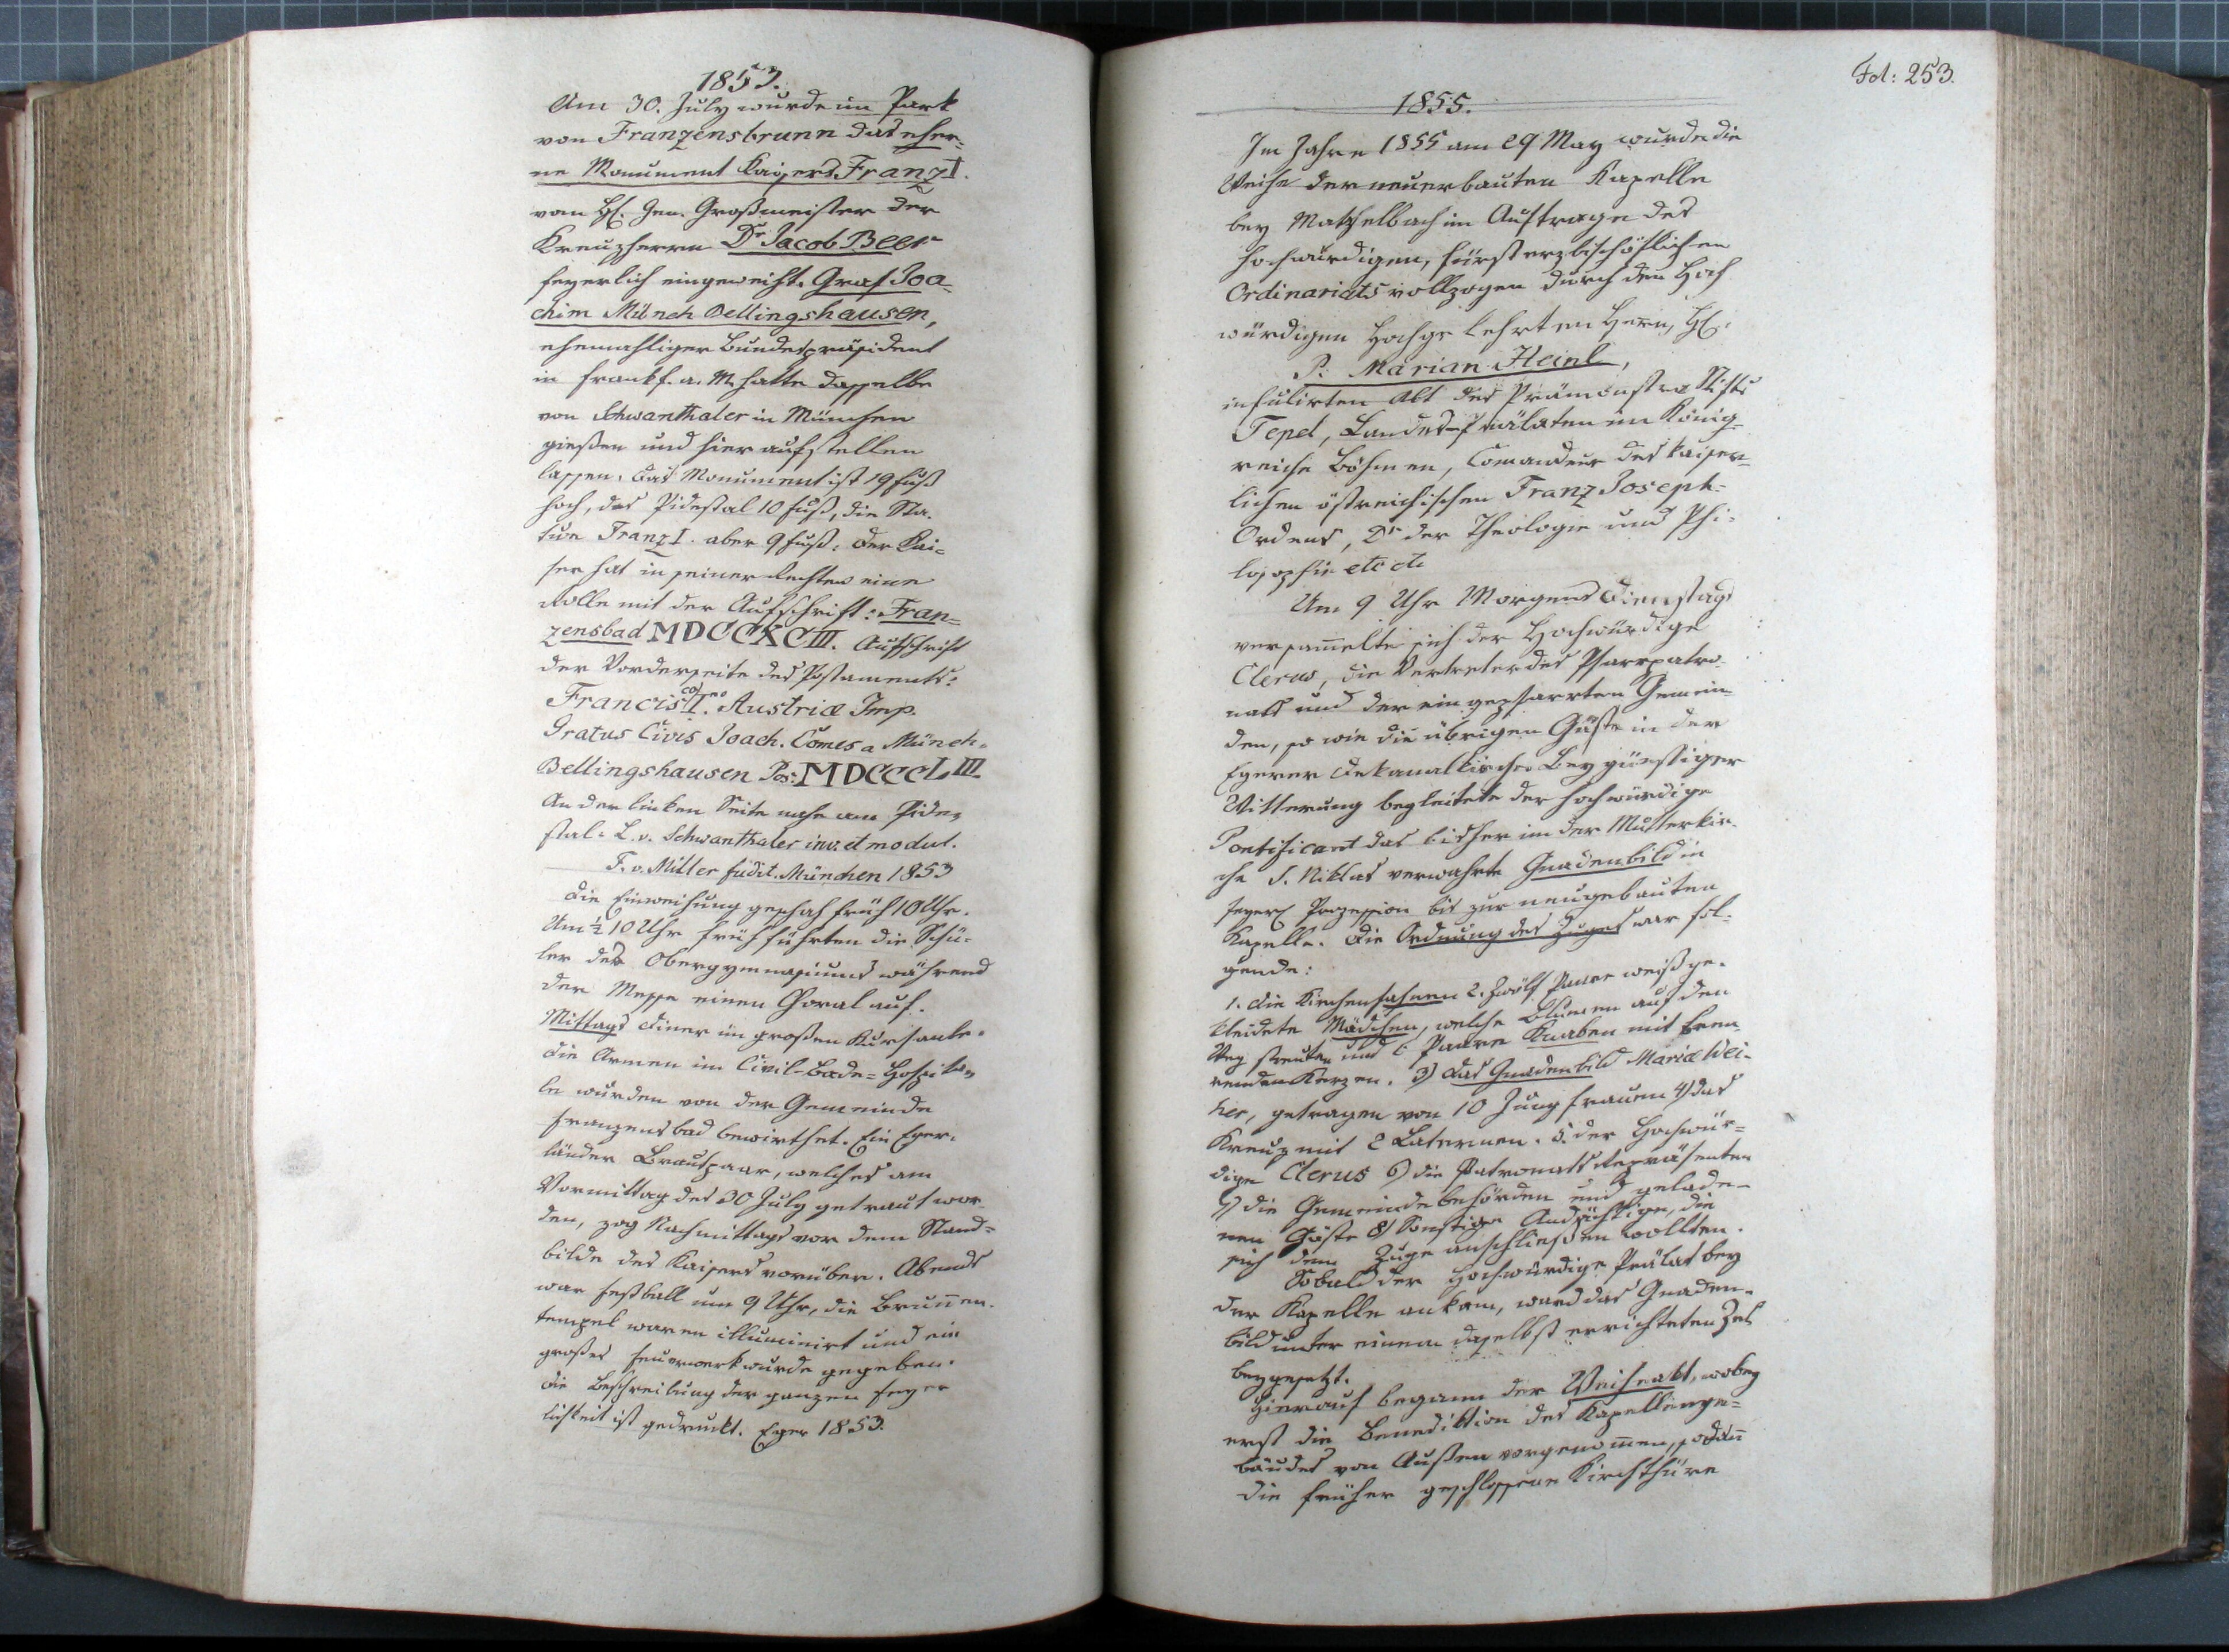 1853.
Am 30. July wurde im Park
von Franzensbrunn das eher-
ne Monument Kaisers Franz I.
vom H. Gen. Großmeister der
Kreuzherrn Dr Jacob Beer
feyerlich eingeweiht. Graf Joa-
chim Münch Bellingshausen,
ehemahliger Bundespräsident
in Frankf. a. M. hatte dasselbe
von Schwanthaler in München
gießen und hier aufstellen
lassen. Das Monument ist 19 Fuß
hoch, das Pidestal 10 Fuß, die Sta-
tue Franz I. aber 9 Fuß. Der Kai-
ser hat in seiner Rechten eine
Rolle mit der Aufschrift: Fran-
zensbad MDCCXCIII. Aufschrift
der Vorderseite des Postaments:
Francisco I.mo Austriæ Imp.
Gratus Civis Joach. Comes a Münch-
Bellingshausen Pos: MDCCCLIII.
An der linken Seite nahe am Pide-
stal: L. v. Schwanthaler inv. et modul.
F. v. Miller fudit. München 1853
Die Einweihung geschah früh 10 Uhr.
Um ½ 10 Uhr früh führten die Schü-
ler des Obergymnasiums während
der Messe einen Choral auf.
Mittags Diner im großen Kursaale.
Die Armen im Civil-Bade-Hospita-
le wurden von der Gemeinde
Franzensbad bewirthet. Ein Eger-
länder Brautpaar, welches am
Vormittag des 30 July getraut wor-
den, zog Nachmittags vor dem Stand-
bilde des Kaisers vorüber. Abends
war Festball um 9 Uhr, die Brunnen-
tempel waren illuminirt und ein
großes Feuerwerk wurde gegeben.
Die Beschreibung der ganzen Feyer
lichkeit ist gedruckt. Eger 1853.
Fol: 253.
1855.
Im Jahre 1855 am 29 May wurde die
Weihe der neuerbauten Kapelle
bey Matzelbach im Auftrage des
hochwürdigen, fürsterzbischöflichen
Ordinariats vollzogen durch den Hoch
würdigen Hochgelehrten Herrn, H.
P. Marian Heinl,
infulirten Abt des Prämonstra Stifts
Tepel, Landes-Prälaten im König-
reiche Böhmen, Comandeur des kaiser-
lichen östreichischen Franz Joseph-
Ordens, Dr der Theologie und Phi-
losophie etc etc
Um 9 Uhr Morgens Dienstags
versam̅elte sich der Hochwürdige
Clerus, die Vertreter des Pfarrpatro-
nats und der eingepfarrten Gemein-
den, so wie die übrigen Gäste in der
Egerer Dekanalkirche. Bey günstiger
Witterung begleitete der hochwürdige
Pontificant das bisher in der Mutterkir-
che S. Niklas verwahrte Gnadenbild in
feyerl. Prozession bis zur neugebauten
Kapelle. Die Ordnung des Zuges war fol-
gende:
1. Die Kirchenfahnen 2. Zwölf Paare weiß ge-
kleidete Mädchen, welche Blumen auf den
Weg streuten und 6 Paare Knaben mit bren-
nenden Kerzen. 3) Das Gnadenbild Mariæ Wei-
her, getragen von 10 Jungfrauen 4) das
Kreuz mit 2 Laternen. 5. der Hochwür-
dige Clerus 6) die Patronats Repräsenten
7) die Gemeindebehörden und gelade-
nen Gäste 8) Sonstige Andächtige, die
sich dem Zuge anschließen wollten.
Sobald der Hochwürdige Prälat bey
der Kapelle ankam, ward das Gnaden-
bild unter einem daselbst errichteten Zelt
beygesetzt.
Hierauf begann der Weiheakt, wobey
erst die Benediktion des Kapellenge-
bäudes von Außen vorgenom̅en, sodan̅
die früher geschlossene Kirchthüre